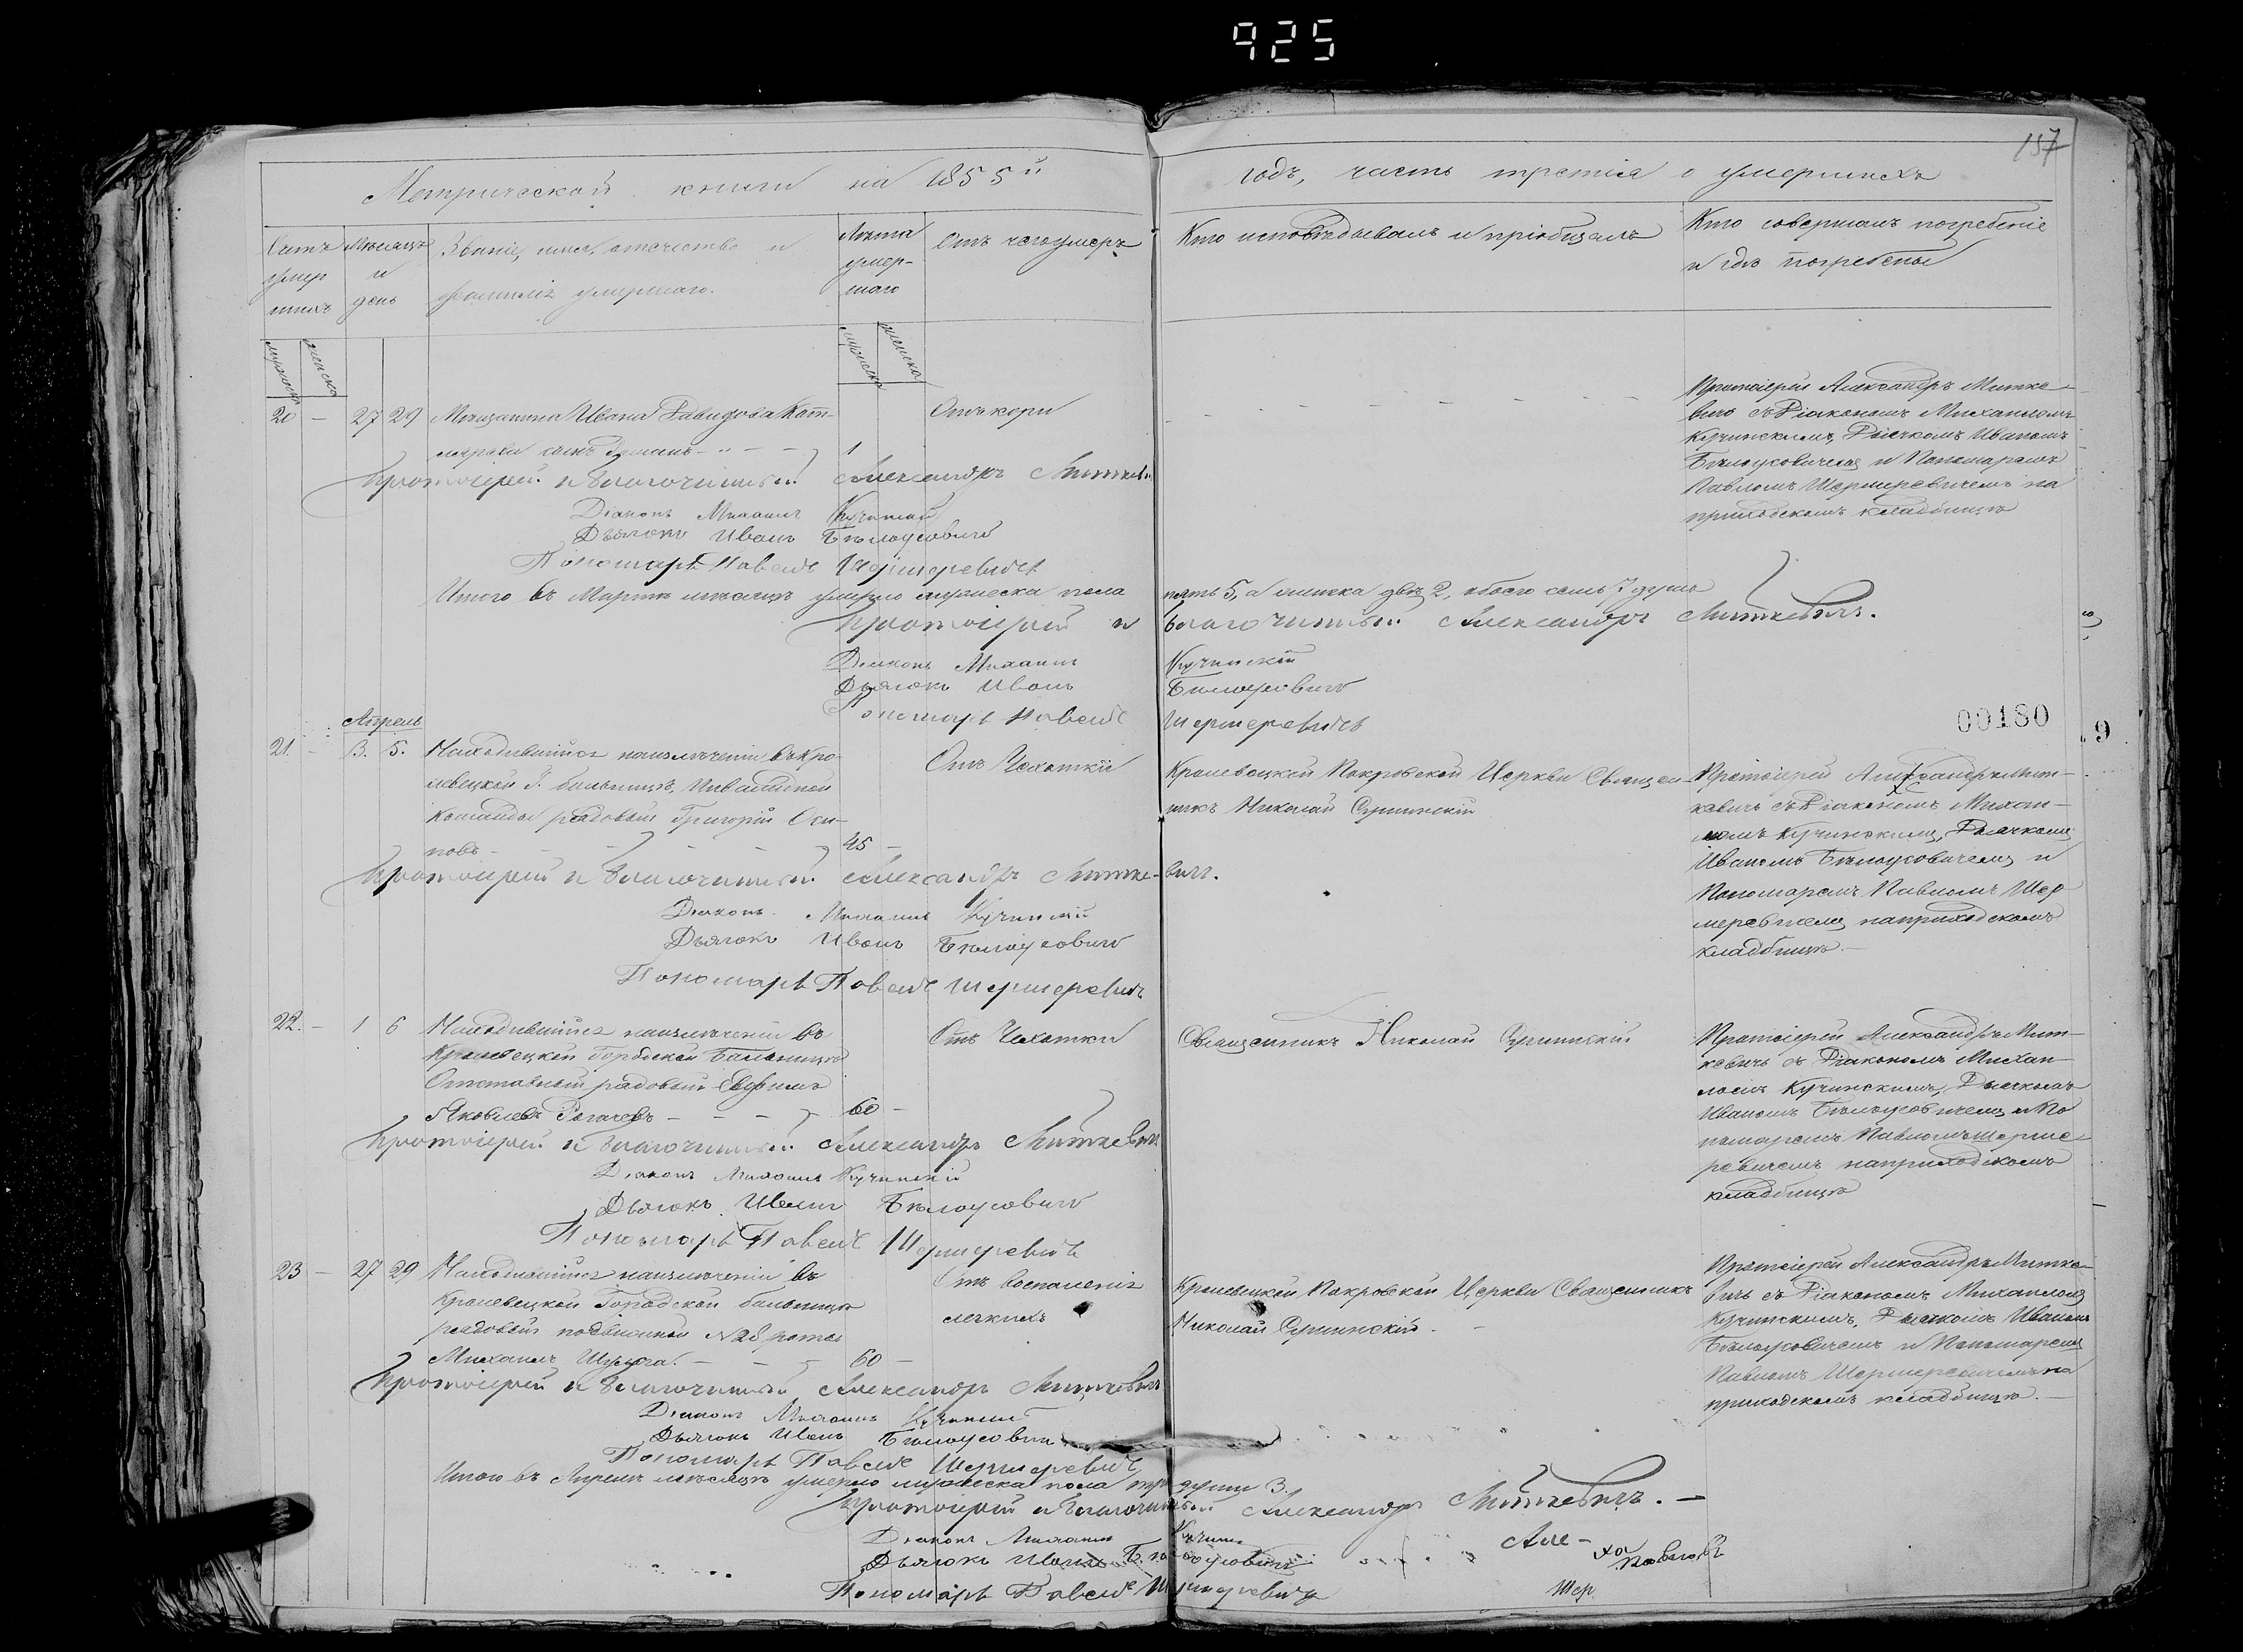 925
157
Метрической книги на 1855й годъ, часть третія о умершихъ
Счетъ умер шихъ
Мѣсяцъ и день
Званіе, имя, отечество и фамилія умершаго.
Лѣта умер- шаго
Отъ чего умеръ
Кто исповѣдывалъ и пріобщалъ
Кто совершалъ погребеніе и гдѣ погребены
мужеска женска
мужеска женска
20 – 27 29 Мещанина Ивана Давидова Кот-
лярова сынъ Романъ 1
Отъ кори
Протоіерей Александръ Митке-
вичь съ Діакономъ Михаиломъ
Кучинскимъ, Дьячкомъ Иваномъ
Бѣлоусовичемъ и Пономаремъ
Павломъ Шермеревичемъ на
приходскомъ кладбищѣ
Протоіерей и Благочинный Александръ Миткевич
Діаконъ Михаилъ Кучинскій
Дьячокъ Иванъ Бѣлоусовичъ
Пономарь Павелъ Шермеревичъ
Итого въ Мартѣ мѣсяцѣ умерло мужеска пола пять 5, а женска двѣ 2, обоего семь 7 душъ
Протоіерей и Благочинный Александръ Миткевичъ.
Діаконъ Михаилъ Кучинскій
Дьячокъ Иванъ Бѣлоусовичъ
Пономарь Павелъ Шермеревичъ
00180
9
Апрель
21. – 3. 5. Находившійся на излѣченіи въ Кро-
левецкой Г. больницѣ, Инвалидной
Команды рядовый Григорій Оси-
повъ 45 –
Отъ Чахотки
Кролевецкой Покровской Церкви Священ-
никъ Николай
Протоіерей Александръ Мит-
кевичь съ Діакономъ Михаи-
ломъ Кучинскимъ, Дьячкомъ
Иваномъ Бѣлоусовичемъ и
Пономаремъ Павломъ Шер
меревичемъ на приходскомъ
кладбищѣ. –
Протоіерей и Благочинный Александръ Миткевичъ.
Діаконъ Михаилъ Кучинскій
Дьячокъ Иванъ Бѣлоусовичъ
Пономарь Павелъ Шермеревичъ
22. – 1 6 Находившійся на излѣченіи въ
Кролевецкой Городской Больницѣ
Отставный рядовый Евфимъ
Яковлевъ Рогачевъ 60 –
Отъ Чахотки
Священникъ Николай
Протоіерей Александръ Мит-
кевичь съ Діакономъ Михаи-
ломъ Кучинскимъ, Дьячкомъ
Иваномъ Бѣлоусовичемъ и По
номаремъ Павломъ Шерме-
ревичемъ на приходскомъ
кладбищѣ
Протоіерей и Благочинный Александръ Миткевич
Діаконъ Михаилъ Кучинскій
Дьячокъ Иванъ Бѣлоусовичъ
Пономарь Павелъ Шермеревичъ
23 – 27 29 Находившійся на излѣченіи въ
Кролевецкой Городской больницѣ
рядовый подвижной №28 роты
Михаилъ 60 –
Отъ воспаленія
легкихъ
Кролевецкой Покровской Церкви Священникъ
Николай
Протоіерей Александръ Митке-
вичь съ Діакономъ Михаиломъ
Кучинскимъ, Дьячкомъ Иваномъ
Бѣлоусовичемъ и Пономаремъ
Павломъ Шермеревичемъ на
приходскомъ кладбищѣ. –
Протоіерей и Благочинный Александръ Миткевич
Діаконъ Михаилъ Кучинскій
Дьячокъ Иванъ Бѣлоусовичъ
Пономарь Павелъ Шермеревичъ
Итого въ Апрелѣ мѣсяцѣ умерло мужеска пола три души 3.
Протоіерей и Благочинный Александръ Миткевичъ. –
Діаконъ Михаилъ Кучин
Дьячокъ Иванъ Бѣлоусовичъ
Пономарь Павелъ Шермеревичъ
Але-
Шер